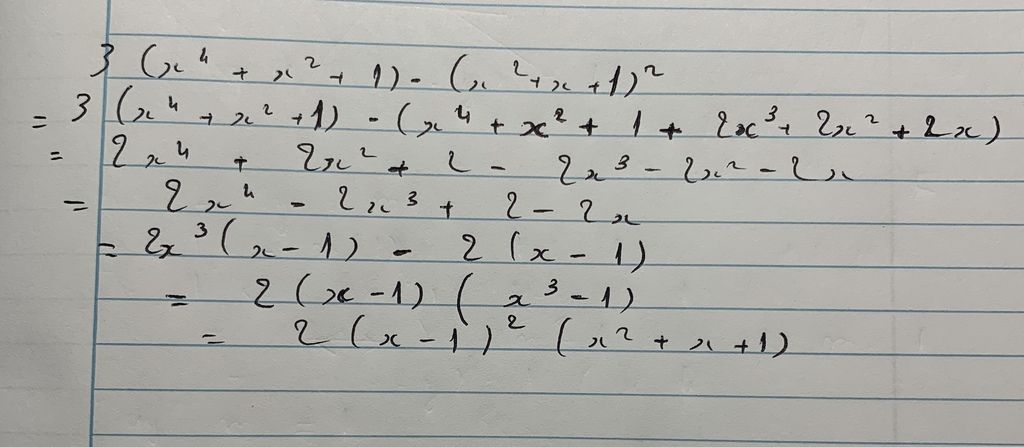 3 (x⁴ + x² + 1) - (x² + x + 1)²
= 3 (x⁴ + x² + 1) - (x⁴ + x² + 1 + 2x³ + 2x² + 2x)
= 2x⁴ + 2x² + 2 - 2x³ - 2x² - 2x
= 2x⁴ - 2x³ + 2 - 2x
= 2x³ (x - 1) - 2 (x - 1)
= 2 (x - 1) (x³ - 1)
= 2 (x - 1)² (x² + x + 1)